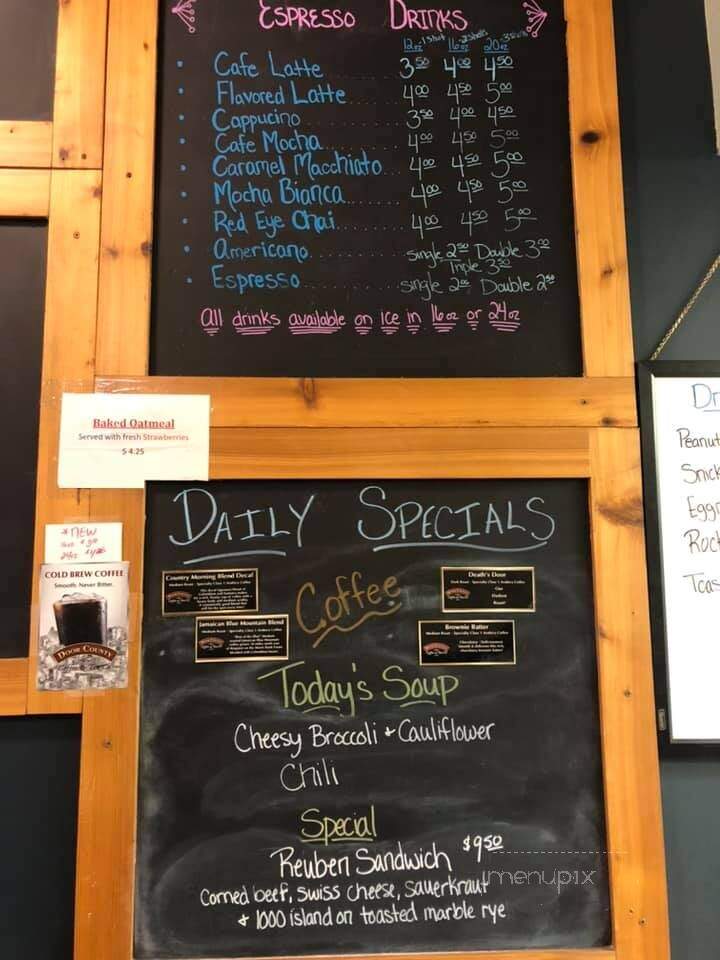 Espresso Drinks
12oz 1 shot 16oz 2 shots 20oz 3 shots
• Cafe Latte 3 50 4 00 4 50
• Flavored Latte 4 00 4 50 5 00
• Cappucino 3 50 4 00 4 50
• Cafe Mocha 4 00 4 50 5 00
• Caramel Macchiato 4 00 4 50 5 00
• Mocha Bianca 4 00 4 50 5 00
• Red Eye Chai 4 00 4 50 5 00
• Americano single 2 50 Double 3 00
Triple 3 50
• Espresso single 2 00 Double 2 50
all drinks available on ice in 16oz or 24oz
Baked Oatmeal
Served with fresh Strawberries
$ 4.25
* NEW
COLD BREW COFFEE
Smooth. Never Bitter.
DOOR COUNTY
DAILY SPECIALS
Coffee
Country Morning Blend Decaf
Jamaican Blue Mountain Blend
Death's Door
Brownie Batter
Today's Soup
Cheesy Broccoli + Cauliflower
Chili
Special
Reuben Sandwich $9 50
Corned beef, swiss cheese, sauerkraut
+ 1000 island on toasted marble rye
menupix
Dr
Peanut
Snick
Eggr
Rock
Toas